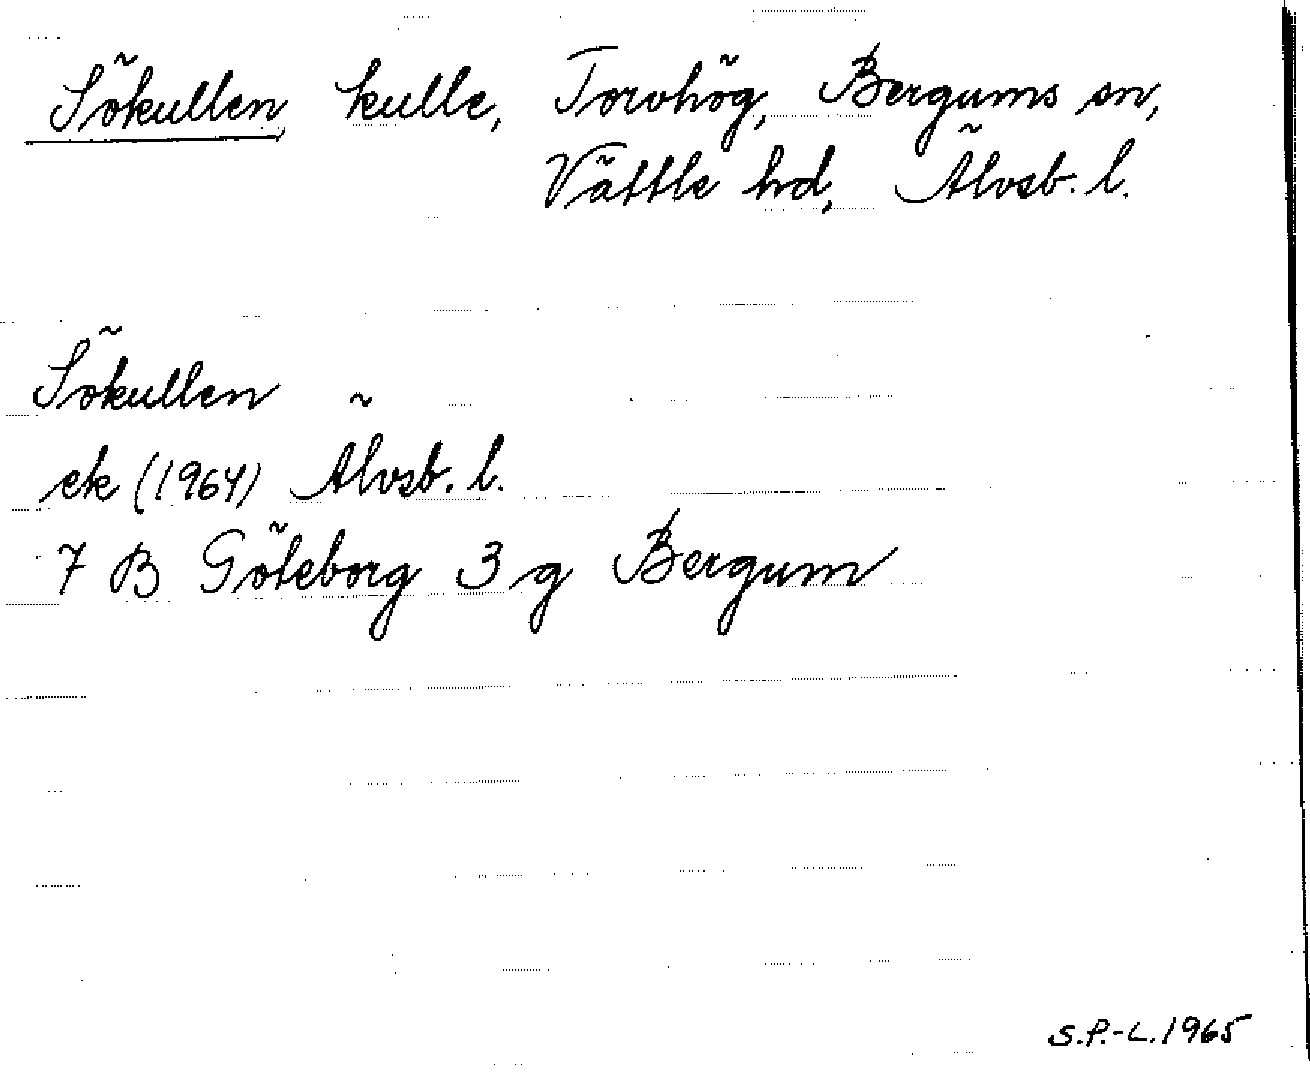 Sökullen, kulle, Torvhög, Bergums sn,
Vättle hd, Älvsb. l.
Sökullen
ek (1964) Älvsb. l.
7 B Göteborg 3 g Bergum
S.P.-L. 1965